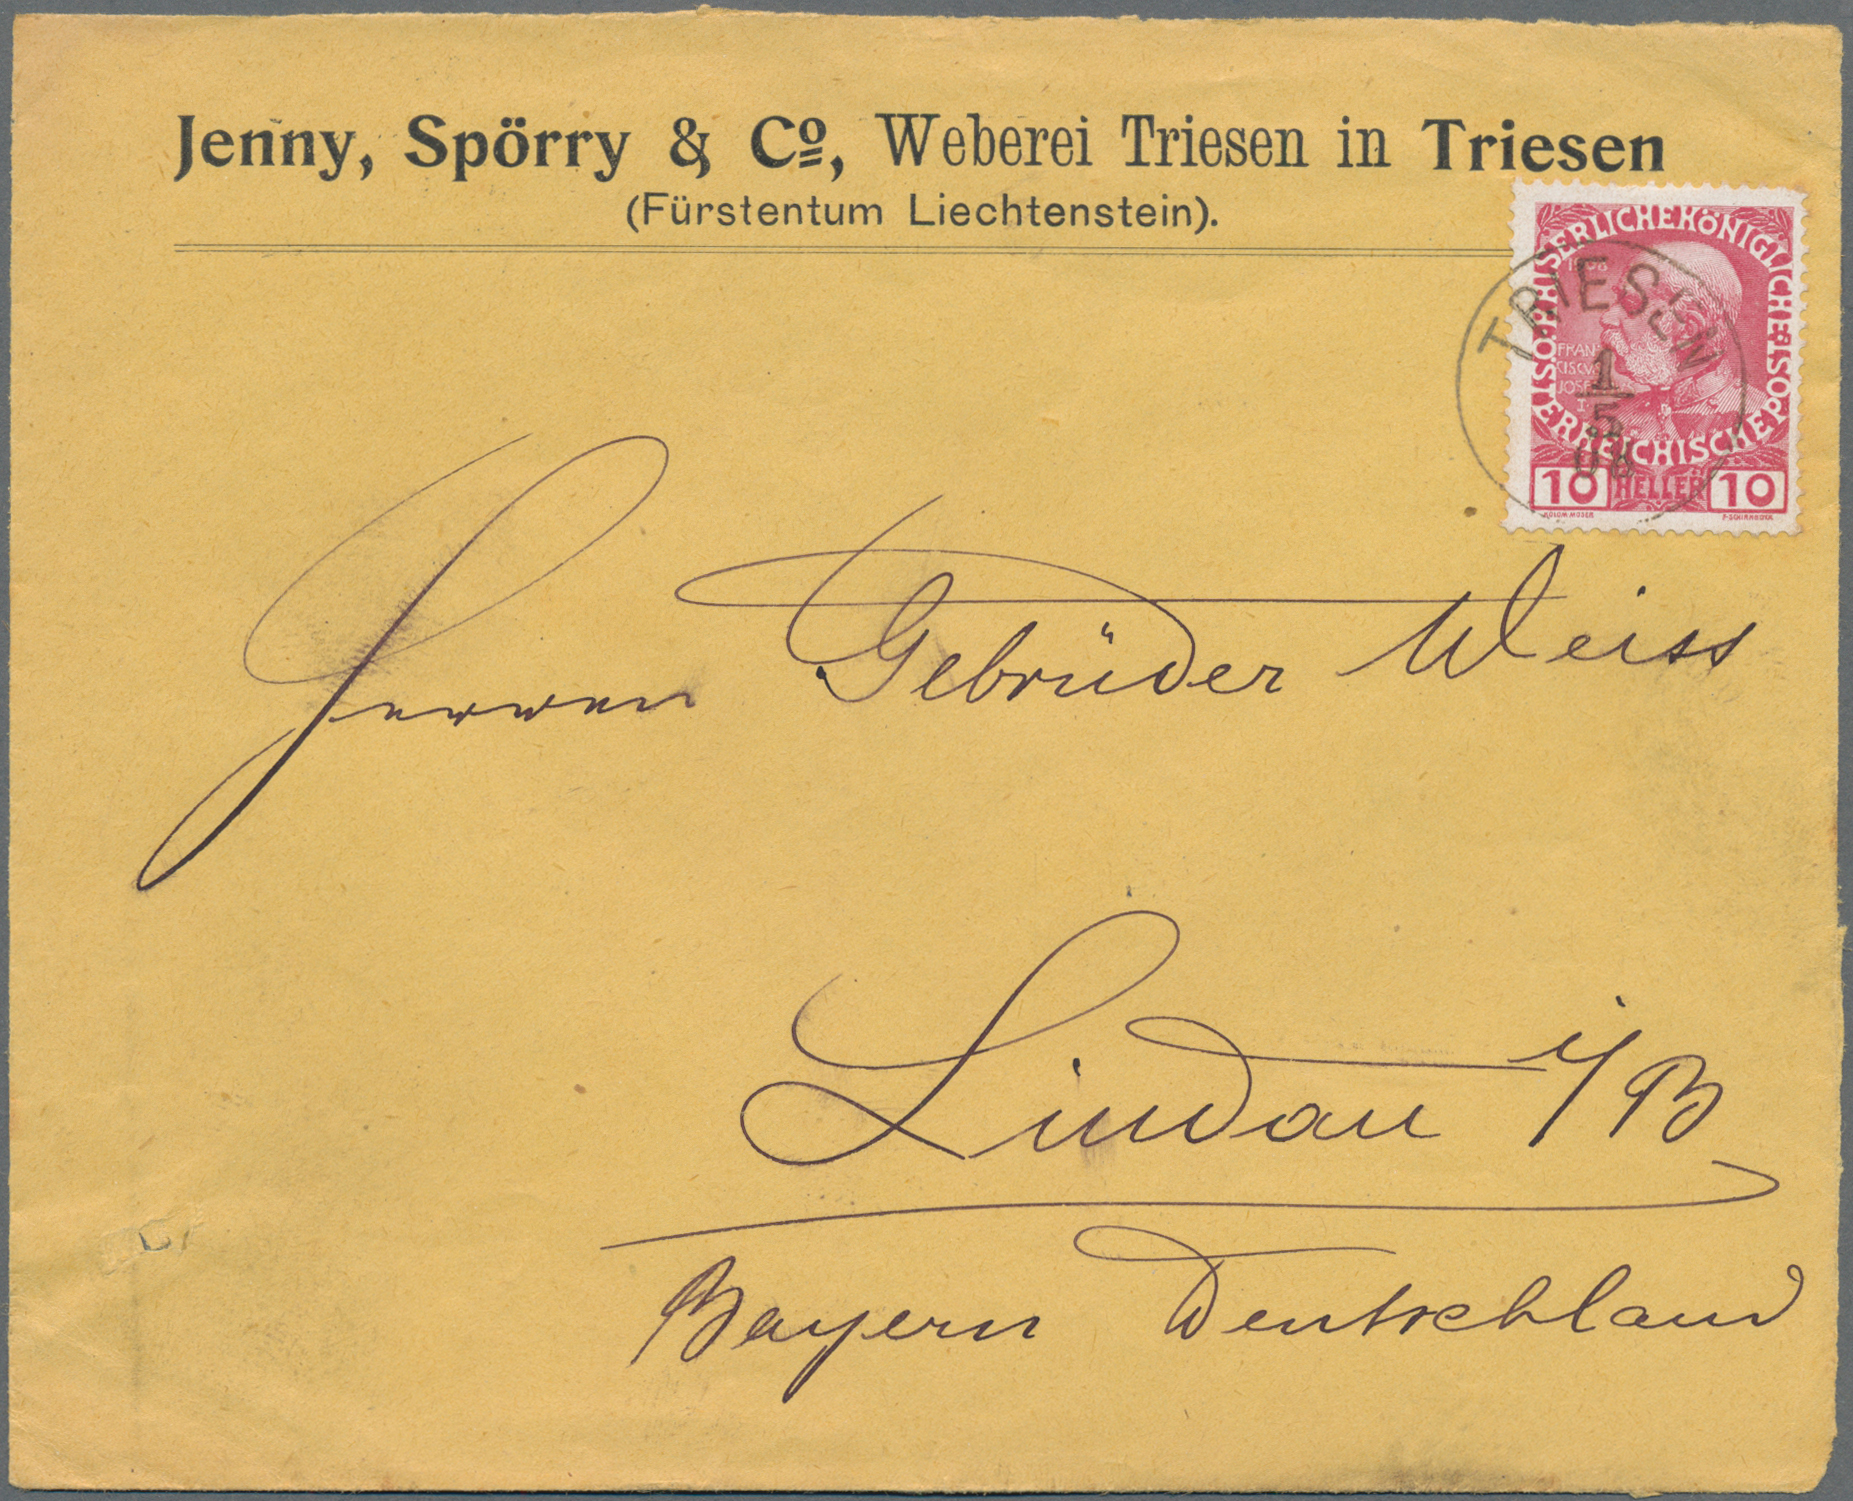 Jenny, Spörry & Co, Weberei Triesen in Triesen
(Fürstentum Liechtenstein).
KAISERLICHEKÖNIGLICHE ÖSTERREICHISCHE POST
1908
FRAN
CISCVS
JOSEF
I
TRIESEN
1
5
08
10 HELLER 10
KOLOM.MOSER F.SCHIRNBÖCK
Herren Gebrüder Weiss
Lindau i/B
Bayern Deutschland